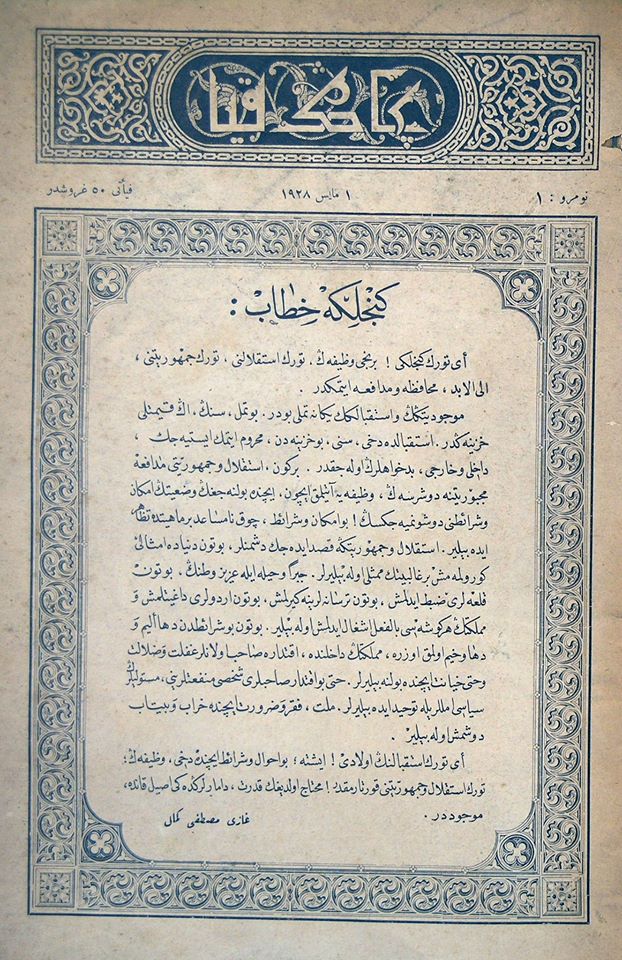 نومرو : ١
١ مايس ١٩٢٨
فيأتى ٥٠ غروشدر
كنجلكه خطاب :
أى تورك كنجلكى ! برنجى وظيفه ڭ ، تورك استقلالنى ، تورك جمهوريتنى ،
الى الابد ، محافظه و مدافعه ايتمكدر .
موجوديتكڭ و استقبالكڭ يكانه تملى بودر . بو تمل ، سنڭ ، اڭ قيمتلى
خزينه ڭدر . استقبالده دخى ، سنى ، بو خزينه دن ، محروم ايتمك ايستيه جك ،
داخلى و خارجى ، بدخواهلرڭ اوله جقدر . بركون ، استقلال و جمهوريتى مدافعه
مجبوريتنه دوشرسه ڭ ، وظيفه يه آتيلمق ايچون ، ايچنده بولنه جغڭ وضعيتڭ امكان
و شرائطنى دوشونميه جكسڭ ! بو امكان و شرائط ، چوق نامساعد بر ماهيتده تظاهر
ايده بيلير . استقلال و جمهوريتڭه قصد ايده جك دشمنلر ، بوتون دنياده امثالى
كورولمه مش بر غالبيتڭ ممثلى اوله بيليرلر . جبرا و حيله ايله عزيز وطنڭ ، بوتون
قلعه لرى ضبط ايدلمش ، بوتون ترسانه لرينه كيرلمش ، بوتون اردولرى داغيتلمش و
مملكتڭ هر كوشه سى بالفعل اشغال ايدلمش اوله بيلير . بوتون بو شرائطدن دها اليم و
دها وخيم اولمق اوزره ، مملكتڭ داخلنده ، اقتداره صاحب اولانلر غفلت و ضلالت
و حتى خيانت ايچنده بولنه بيليرلر . حتى بو اقتدار صاحبلرى شخصى منفعتلرينى ، مستوليلرڭ
سياسى امللريله توحيد ايده بيليرلر . ملت ، فقر و ضرورت ايچنده خراب و بيتاب
دوشمش اوله بيلير .
أى تورك استقبالنڭ اولادى ! ايشته ؛ بو احوال و شرائط ايچنده دخى ، وظيفه ڭ ؛
تورك استقلال و جمهوريتنى قورتارمقدر ! محتاج اولديغڭ قدرت ، دامارلرڭده كى اصيل قانده ،
موجوددر .
غازى مصطفى كمال